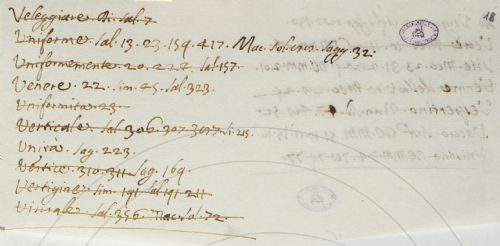 18
Veleggiare Di. sal. 7
Uniforme sal. 13. 23. 159. 417. Mac. sol. sagg. 32.
Uniformemente 20. 224 sal 157.
Venere. 22. im. 45. sal. 323.
Uniformità 23
Verticale. sal. 306. 307. si. 25.
Unità. sag. 223.
Vertice. 310. 311 sag. 169.
Vertigine sim. 191 sal 191 211
Visuale. sal. 356 Mac. sol. 72.